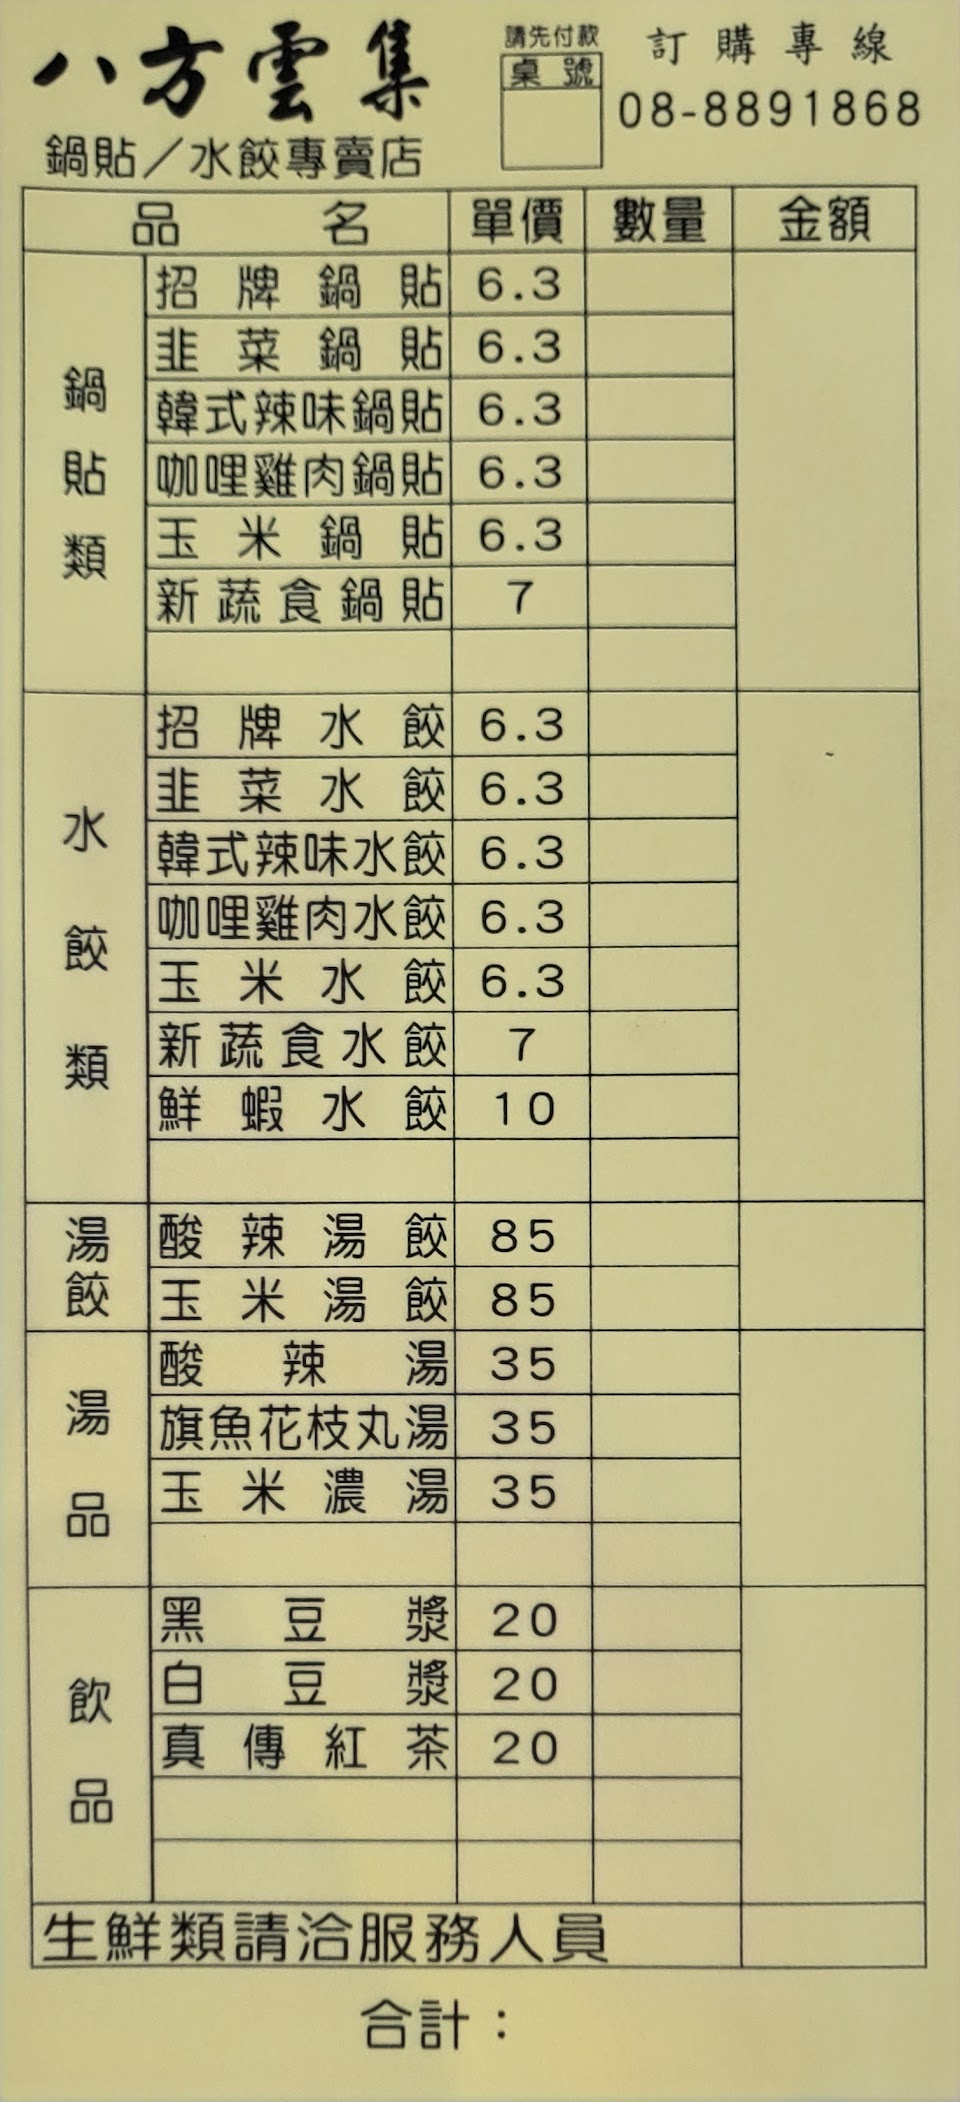 八方雲集
鍋貼／水餃專賣店
請先付款
桌號
訂購專線
08-8891868
品名 單價 數量 金額
鍋貼類
招牌鍋貼 6.3
韭菜鍋貼 6.3
韓式辣味鍋貼 6.3
咖哩雞肉鍋貼 6.3
玉米鍋貼 6.3
新蔬食鍋貼 7
水餃類
招牌水餃 6.3
韭菜水餃 6.3
韓式辣味水餃 6.3
咖哩雞肉水餃 6.3
玉米水餃 6.3
新蔬食水餃 7
鮮蝦水餃 10
湯餃
酸辣湯餃 85
玉米湯餃 85
湯品
酸辣湯 35
旗魚花枝丸湯 35
玉米濃湯 35
飲品
黑豆漿 20
白豆漿 20
真傳紅茶 20
生鮮類請洽服務人員
合計：